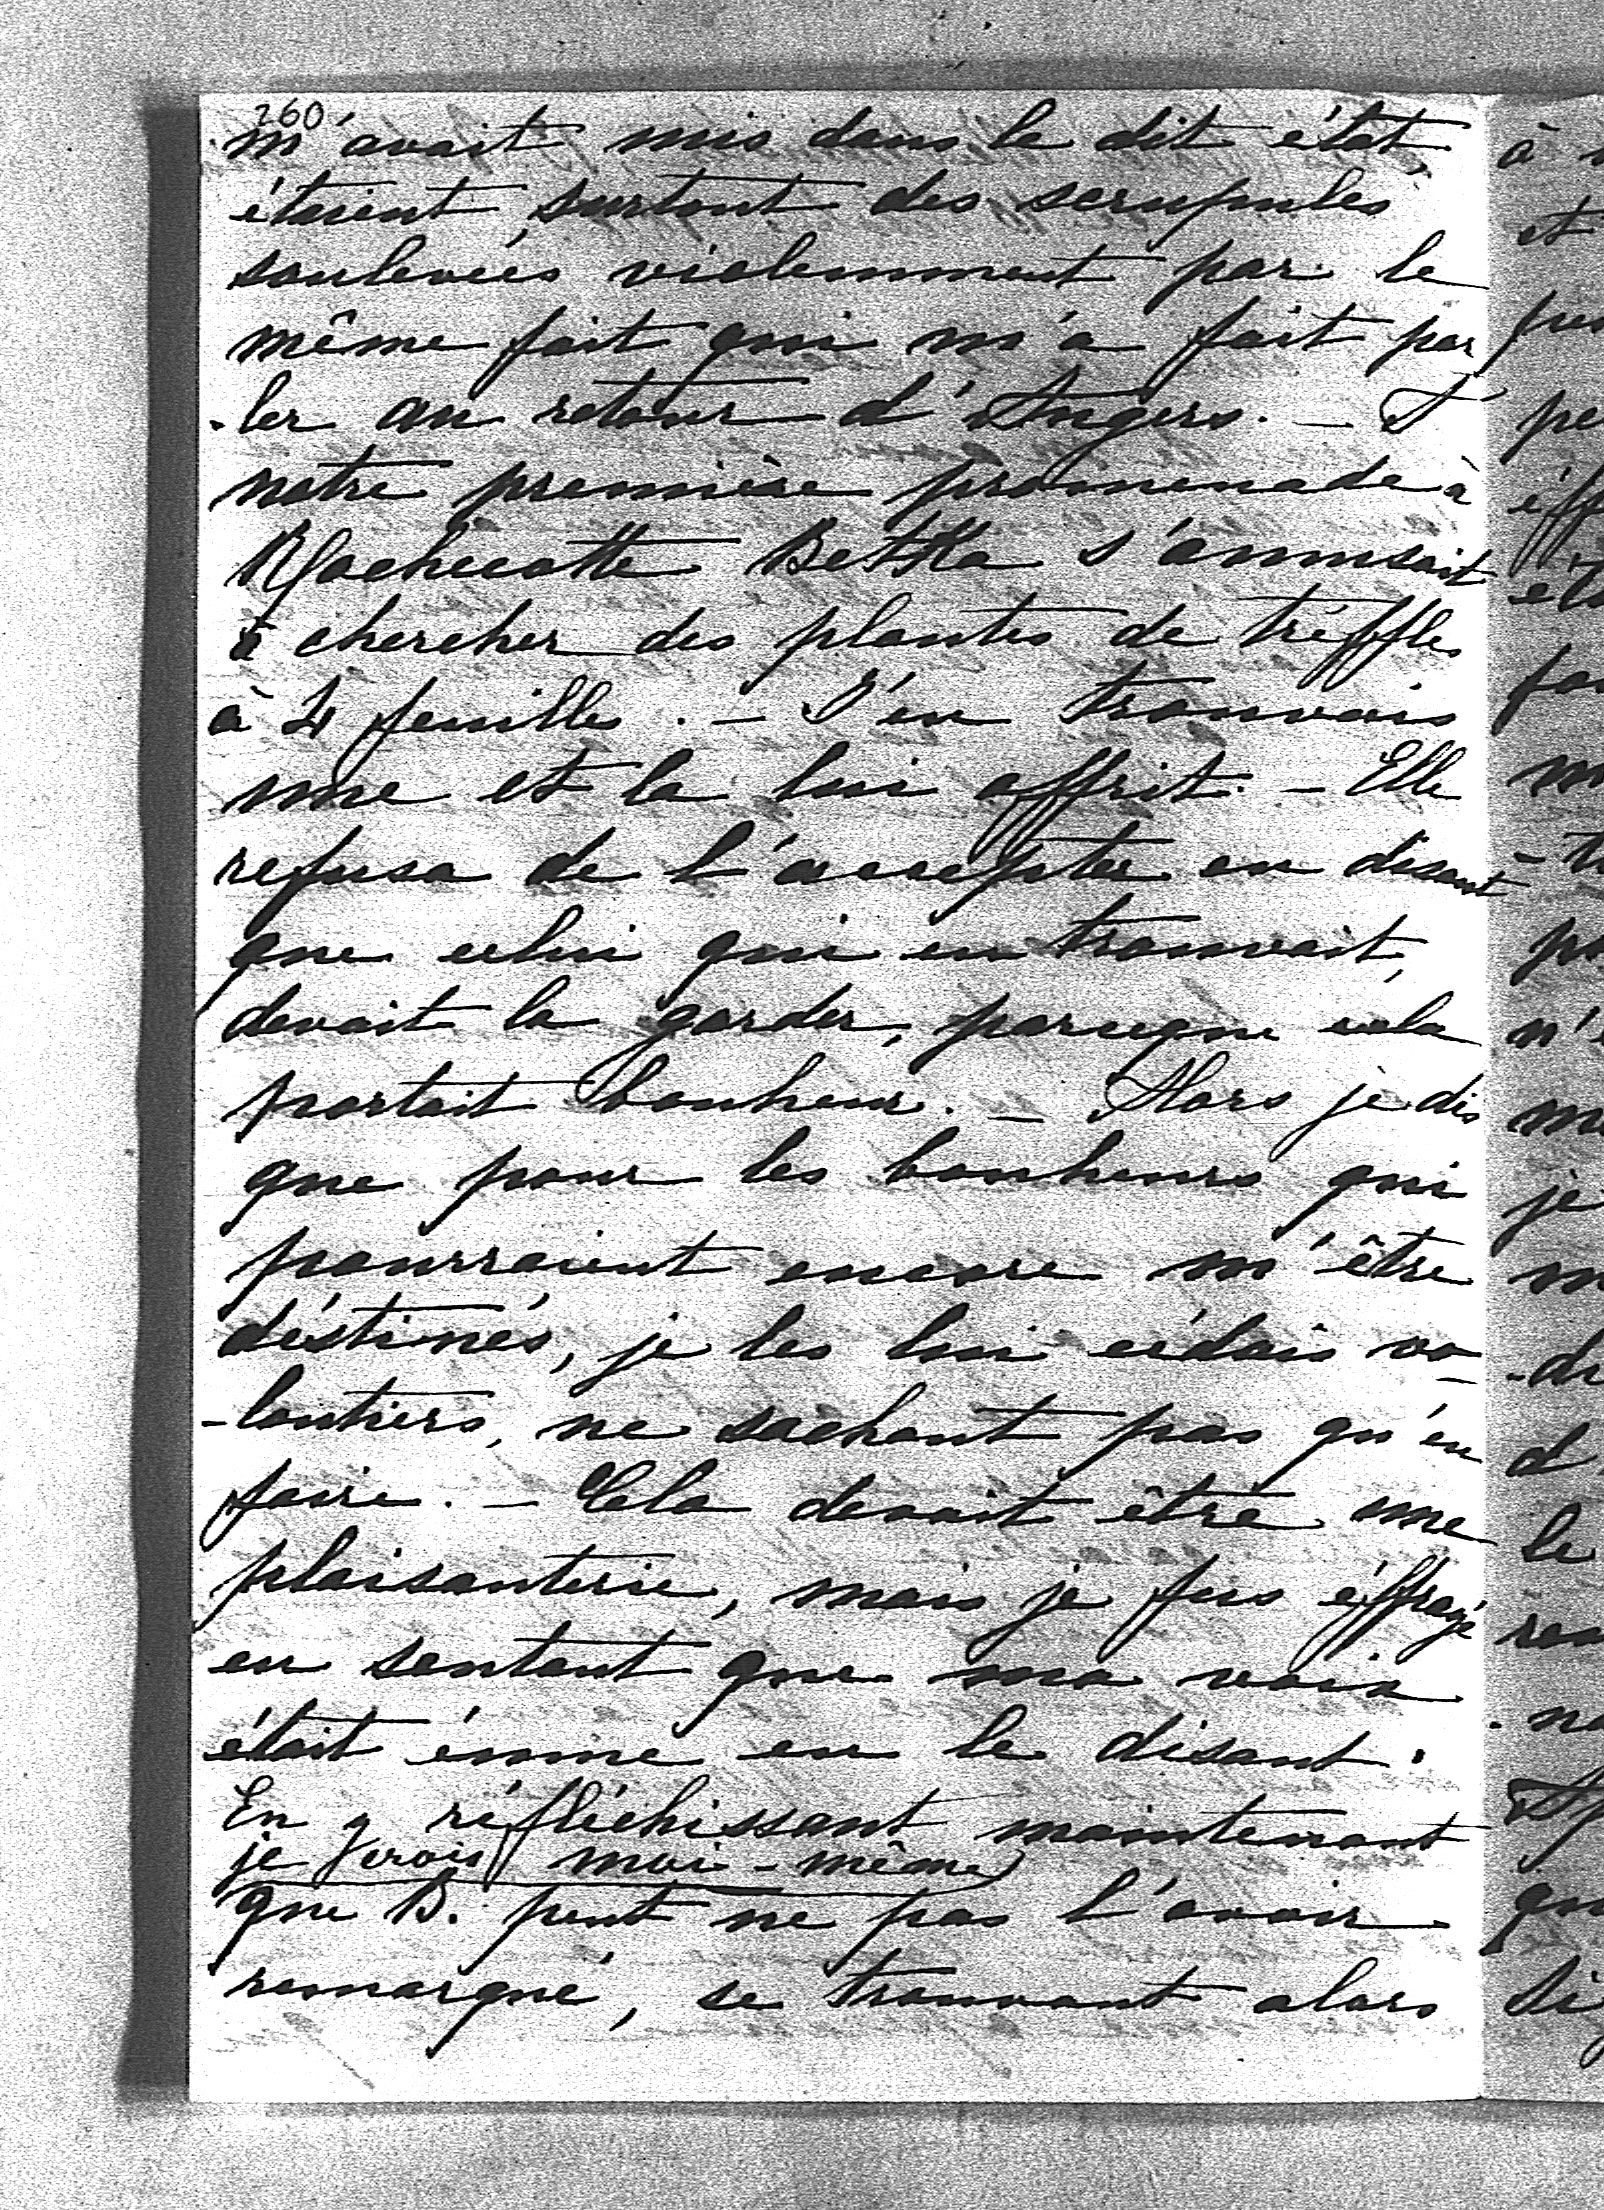 260
m'avait mis dans le dit état,
étaient surtout des scrupules
soulevées violemment par le
même fait qui m'a fait par
-ler au retour d'Angers. – A
notre première promenade à
Rochecotte Betka s'amusait
à chercher des plantes de tréffles
à 4 feuilles. – J'en trouvais
une et la lui offrit. – Elle
refusa de l'accepter en disant
que celui qui en trouvait,
devait la garder, parceque cela
portait bonheur. – Alors je dis
que pour les bonheurs qui
pourraient encore m'être
déstinés, je les lui cédais vo
-lontiers, ne sachant pas qu'en
faire. – Cela devait être une
plaisanterie, mais je fus éffrayé
en sentant que ma voix
était émue en le disant.
En y réfléchissant maintenant
je crois moi-même
que B. peut ne pas l'avoir
remarqué, se trouvant alors